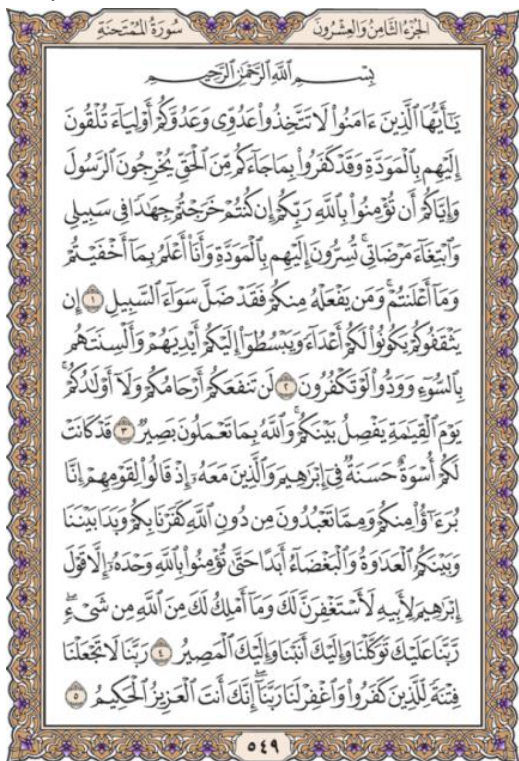 الجزء الثامن والعشرون
سورة الممتحنة
بِسْمِ اللَّهِ الرَّحْمَٰنِ الرَّحِيمِ
يَٰٓأَيُّهَا ٱلَّذِينَ ءَامَنُوا۟ لَا تَتَّخِذُوا۟ عَدُوِّى وَعَدُوَّكُمْ أَوْلِيَآءَ تُلْقُونَ
إِلَيْهِم بِٱلْمَوَدَّةِ وَقَدْ كَفَرُوا۟ بِمَا جَآءَكُم مِّنَ ٱلْحَقِّ يُخْرِجُونَ ٱلرَّسُولَ
وَإِيَّاكُمْ أَن تُؤْمِنُوا۟ بِٱللَّهِ رَبِّكُمْ إِن كُنتُمْ خَرَجْتُمْ جِهَٰدًا فِى سَبِيلِى
وَٱبْتِغَآءَ مَرْضَاتِى تُسِرُّونَ إِلَيْهِم بِٱلْمَوَدَّةِ وَأَنَا۠ أَعْلَمُ بِمَآ أَخْفَيْتُمْ
وَمَآ أَعْلَنتُمْ وَمَن يَفْعَلْهُ مِنكُمْ فَقَدْ ضَلَّ سَوَآءَ ٱلسَّبِيلِ ١ إِن
يَثْقَفُوكُمْ يَكُونُوا۟ لَكُمْ أَعْدَآءً وَيَبْسُطُوٓا۟ إِلَيْكُمْ أَيْدِيَهُمْ وَأَلْسِنَتَهُم
بِٱلسُّوٓءِ وَوَدُّوا۟ لَوْ تَكْفُرُونَ ٢ لَن تَنفَعَكُمْ أَرْحَامُكُمْ وَلَآ أَوْلَٰدُكُمْ
يَوْمَ ٱلْقِيَٰمَةِ يَفْصِلُ بَيْنَكُمْ وَٱللَّهُ بِمَا تَعْمَلُونَ بَصِيرٌ ٣ قَدْ كَانَتْ
لَكُمْ أُسْوَةٌ حَسَنَةٌ فِىٓ إِبْرَٰهِيمَ وَٱلَّذِينَ مَعَهُۥٓ إِذْ قَالُوا۟ لِقَوْمِهِمْ إِنَّا
بُرَءَٰٓؤُا۟ مِنكُمْ وَمِمَّا تَعْبُدُونَ مِن دُونِ ٱللَّهِ كَفَرْنَا بِكُمْ وَبَدَا بَيْنَنَا
وَبَيْنَكُمُ ٱلْعَدَٰوَةُ وَٱلْبَغْضَآءُ أَبَدًا حَتَّىٰ تُؤْمِنُوا۟ بِٱللَّهِ وَحْدَهُۥٓ إِلَّا قَوْلَ
إِبْرَٰهِيمَ لِأَبِيهِ لَأَسْتَغْفِرَنَّ لَكَ وَمَآ أَمْلِكُ لَكَ مِنَ ٱللَّهِ مِن شَىْءٍ
رَّبَّنَا عَلَيْكَ تَوَكَّلْنَا وَإِلَيْكَ أَنَبْنَا وَإِلَيْكَ ٱلْمَصِيرُ ٤ رَبَّنَا لَا تَجْعَلْنَا
فِتْنَةً لِّلَّذِينَ كَفَرُوا۟ وَٱغْفِرْ لَنَا رَبَّنَآ إِنَّكَ أَنتَ ٱلْعَزِيزُ ٱلْحَكِيمُ ٥
٥٤٩